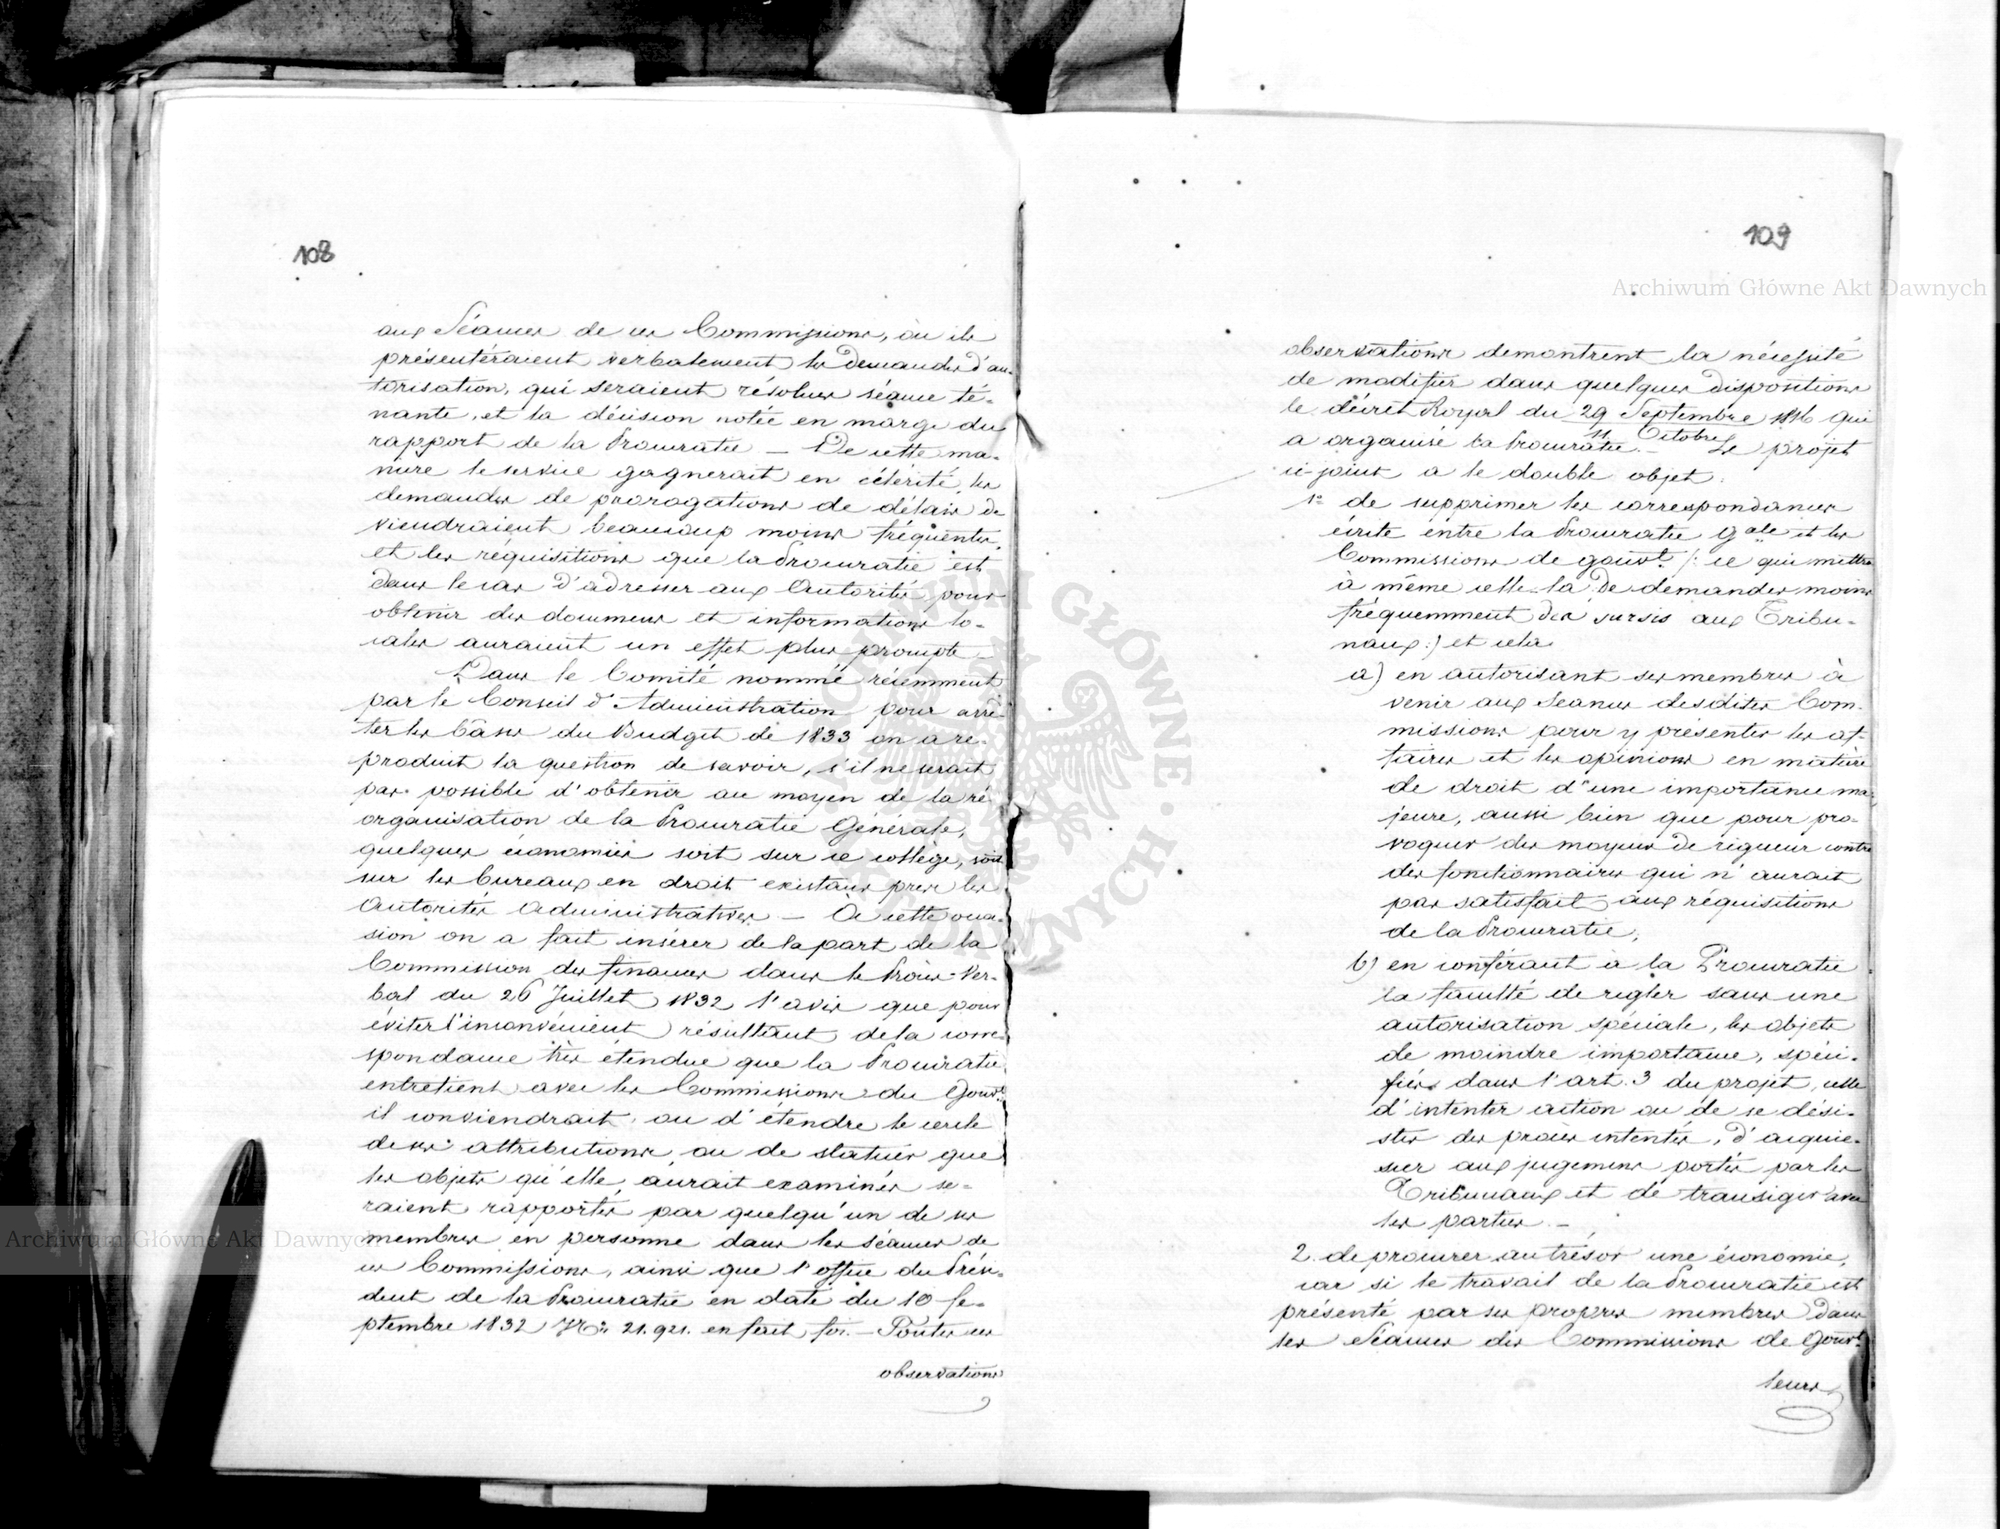 108
aux Séances de ces Commissions, où ils
présentéraient verbalement les demandes d'au-
torisation, qui seraient résolues séance té-
nante, et la décision notée en marge du
rapport de la Procuratie — De cette ma-
nière le service gagnerait en célérité, les
demandes de prorogations de délais de
viendraient beaucoup moins fréquentes,
et les réquisitions que la Procuratie est
dans le cas d'adresser aux Autorités pour
obtenir des documens et informations lo-
cales auraient un effet plus prompte —
Dans le Comité nommé récemment
par le Conseil d'Administration pour arrê-
ter les bâses du Budget de 1833 on a re-
produit la question de savoir, s'il ne serait
pas possible d'obtenir au moyen de la ré
organisation de la Procuratie Générale,
quelques économies soit sur ce collège, soit
sur les bureaux en droit existans près les
Autorités Administratives — À cette occa-
sion on a fait insérer de la part de la
Commission des finances dans le Procès-Ver-
bal du 26 Juillet 1832 l'avis que pour
éviter l'inconvénient résultant de la corre-
spondance très étendue que la Procuratie
entretient avec les Commissions du Gouvt.
il conviendrait ou d'étendre le cercle
de ses attributions, ou de statuer que
les objets qu'elle aurait examinés se-
raient rapportés par quelqu'un de ses
membres en personne dans les séances de
ces Commissions, ainsi que l'office du Prési-
dent de la Procuratie en date du 10 Se-
ptembre 1832 No: 21.921. en fait foi. — Toutes ces
observations
109
observations demontrent la nécessité
de modifier dans quelques dispositions
le décret Royal du 29 Septembre 1816 qui
11 Octobre
a organisé la Procuratie. — Le projet
ci-joint a le double objet:
1o de supprimer les correspondances
écrite entre la Procuratie Gale et les
Commissions de gouvt. /: ce qui mettra
à même celle-là de demander moins
fréquemment des sursis aux Tribu-
naux :/ et cela
a) en autorisant ses membres à
venir aux Seances desdites Com-
missions pour y présenter les af-
faires et les opinions en matière
de droit d'une importance ma-
jeure, aussi bien que pour pro-
voquer des moyens de rigueur contre
des fonctionnaires qui n'aurait
pas satisfait aux réquisitions
de la Procuratie;
b) en conférant à la Procuratie
la faculté de regler sans une
autorisation spéciale, les objets
de moindre importance, spéci-
fiés dans l'art. 3 du projet, celle
d'intenter action ou de se dési-
ster des procès intentés, d'acquie-
scer aux jugemens portés par les
Tribunaux et de transiger avec
les parties. —
2. de procurer au trésor une économie,
car si le travail de la Procuratie est
présenté par ses propres membres dans
les Séances des Commissions de Gouvt.
leurs
Archiwum Główne Akt Dawnych
Archiwum Główne Akt Dawnych
ARCHIWUM GŁÓWNE · AKT DAWNYCH ·